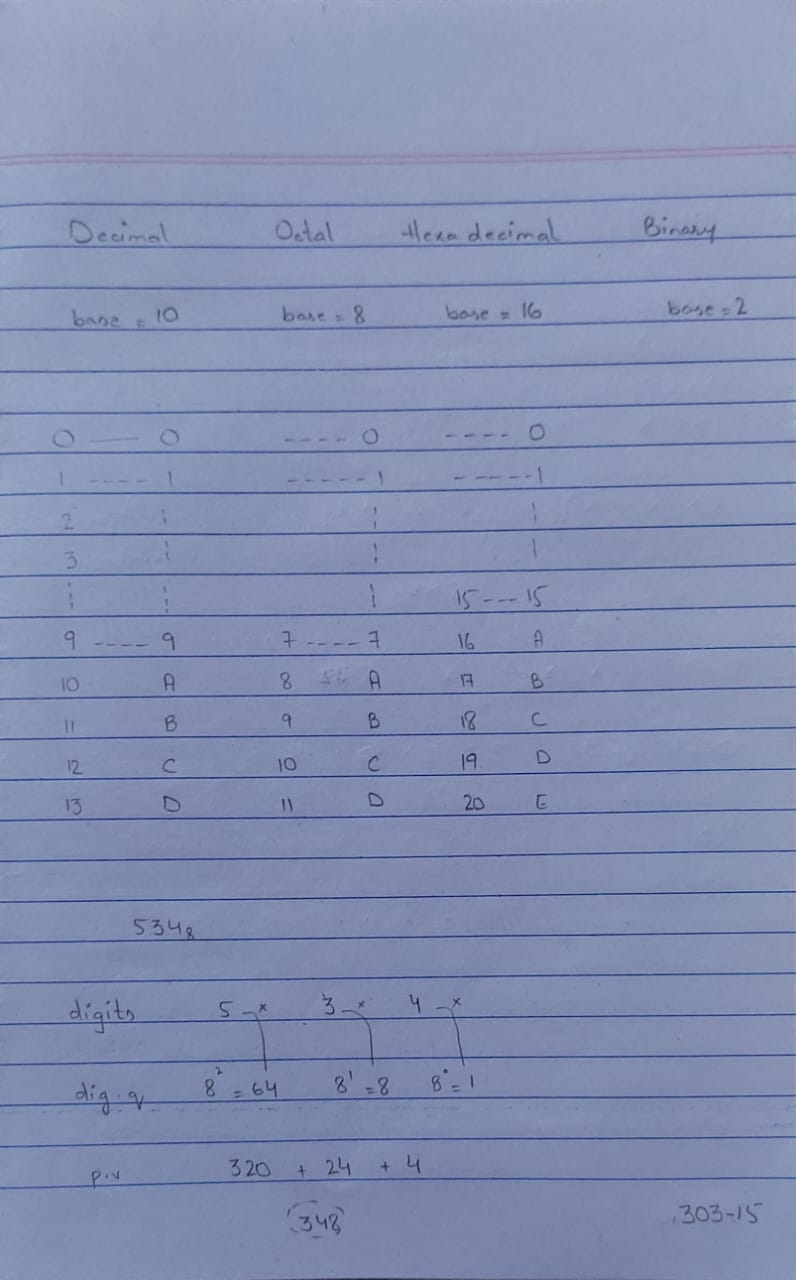 Decimal Octal Hexa decimal Binary
base = 10 base = 8 base = 16 base = 2
0 — 0 ---- 0 ---- 0
1 ---- 1 ----- 1 ----- 1
2 ¦ ¦ ¦
3 ¦ ¦ |
¦ ¦ | 15 --- 15
9 ---- 9 7 ---- 7 16 A
10 A 8 A 17 B
11 B 9 B 18 C
12 C 10 C 19 D
13 D 11 D 20 E
534₈
digits 5 × 3 × 4 ×
dig. 8² = 64 8¹ = 8 8° = 1
p.v 320 + 24 + 4
348
.303-15